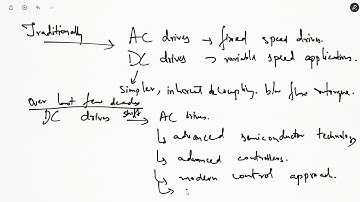 Traditionally → AC drives → fixed speed drives.
DC drives → variable speed applications.
↓
Simpler, inherent decoupling b/w flux & torque.
Over last few decades
DC drives shift → AC drives.
↳ advanced semiconductor technology
↳ advanced controllers.
↳ modern control approach.
↳ :